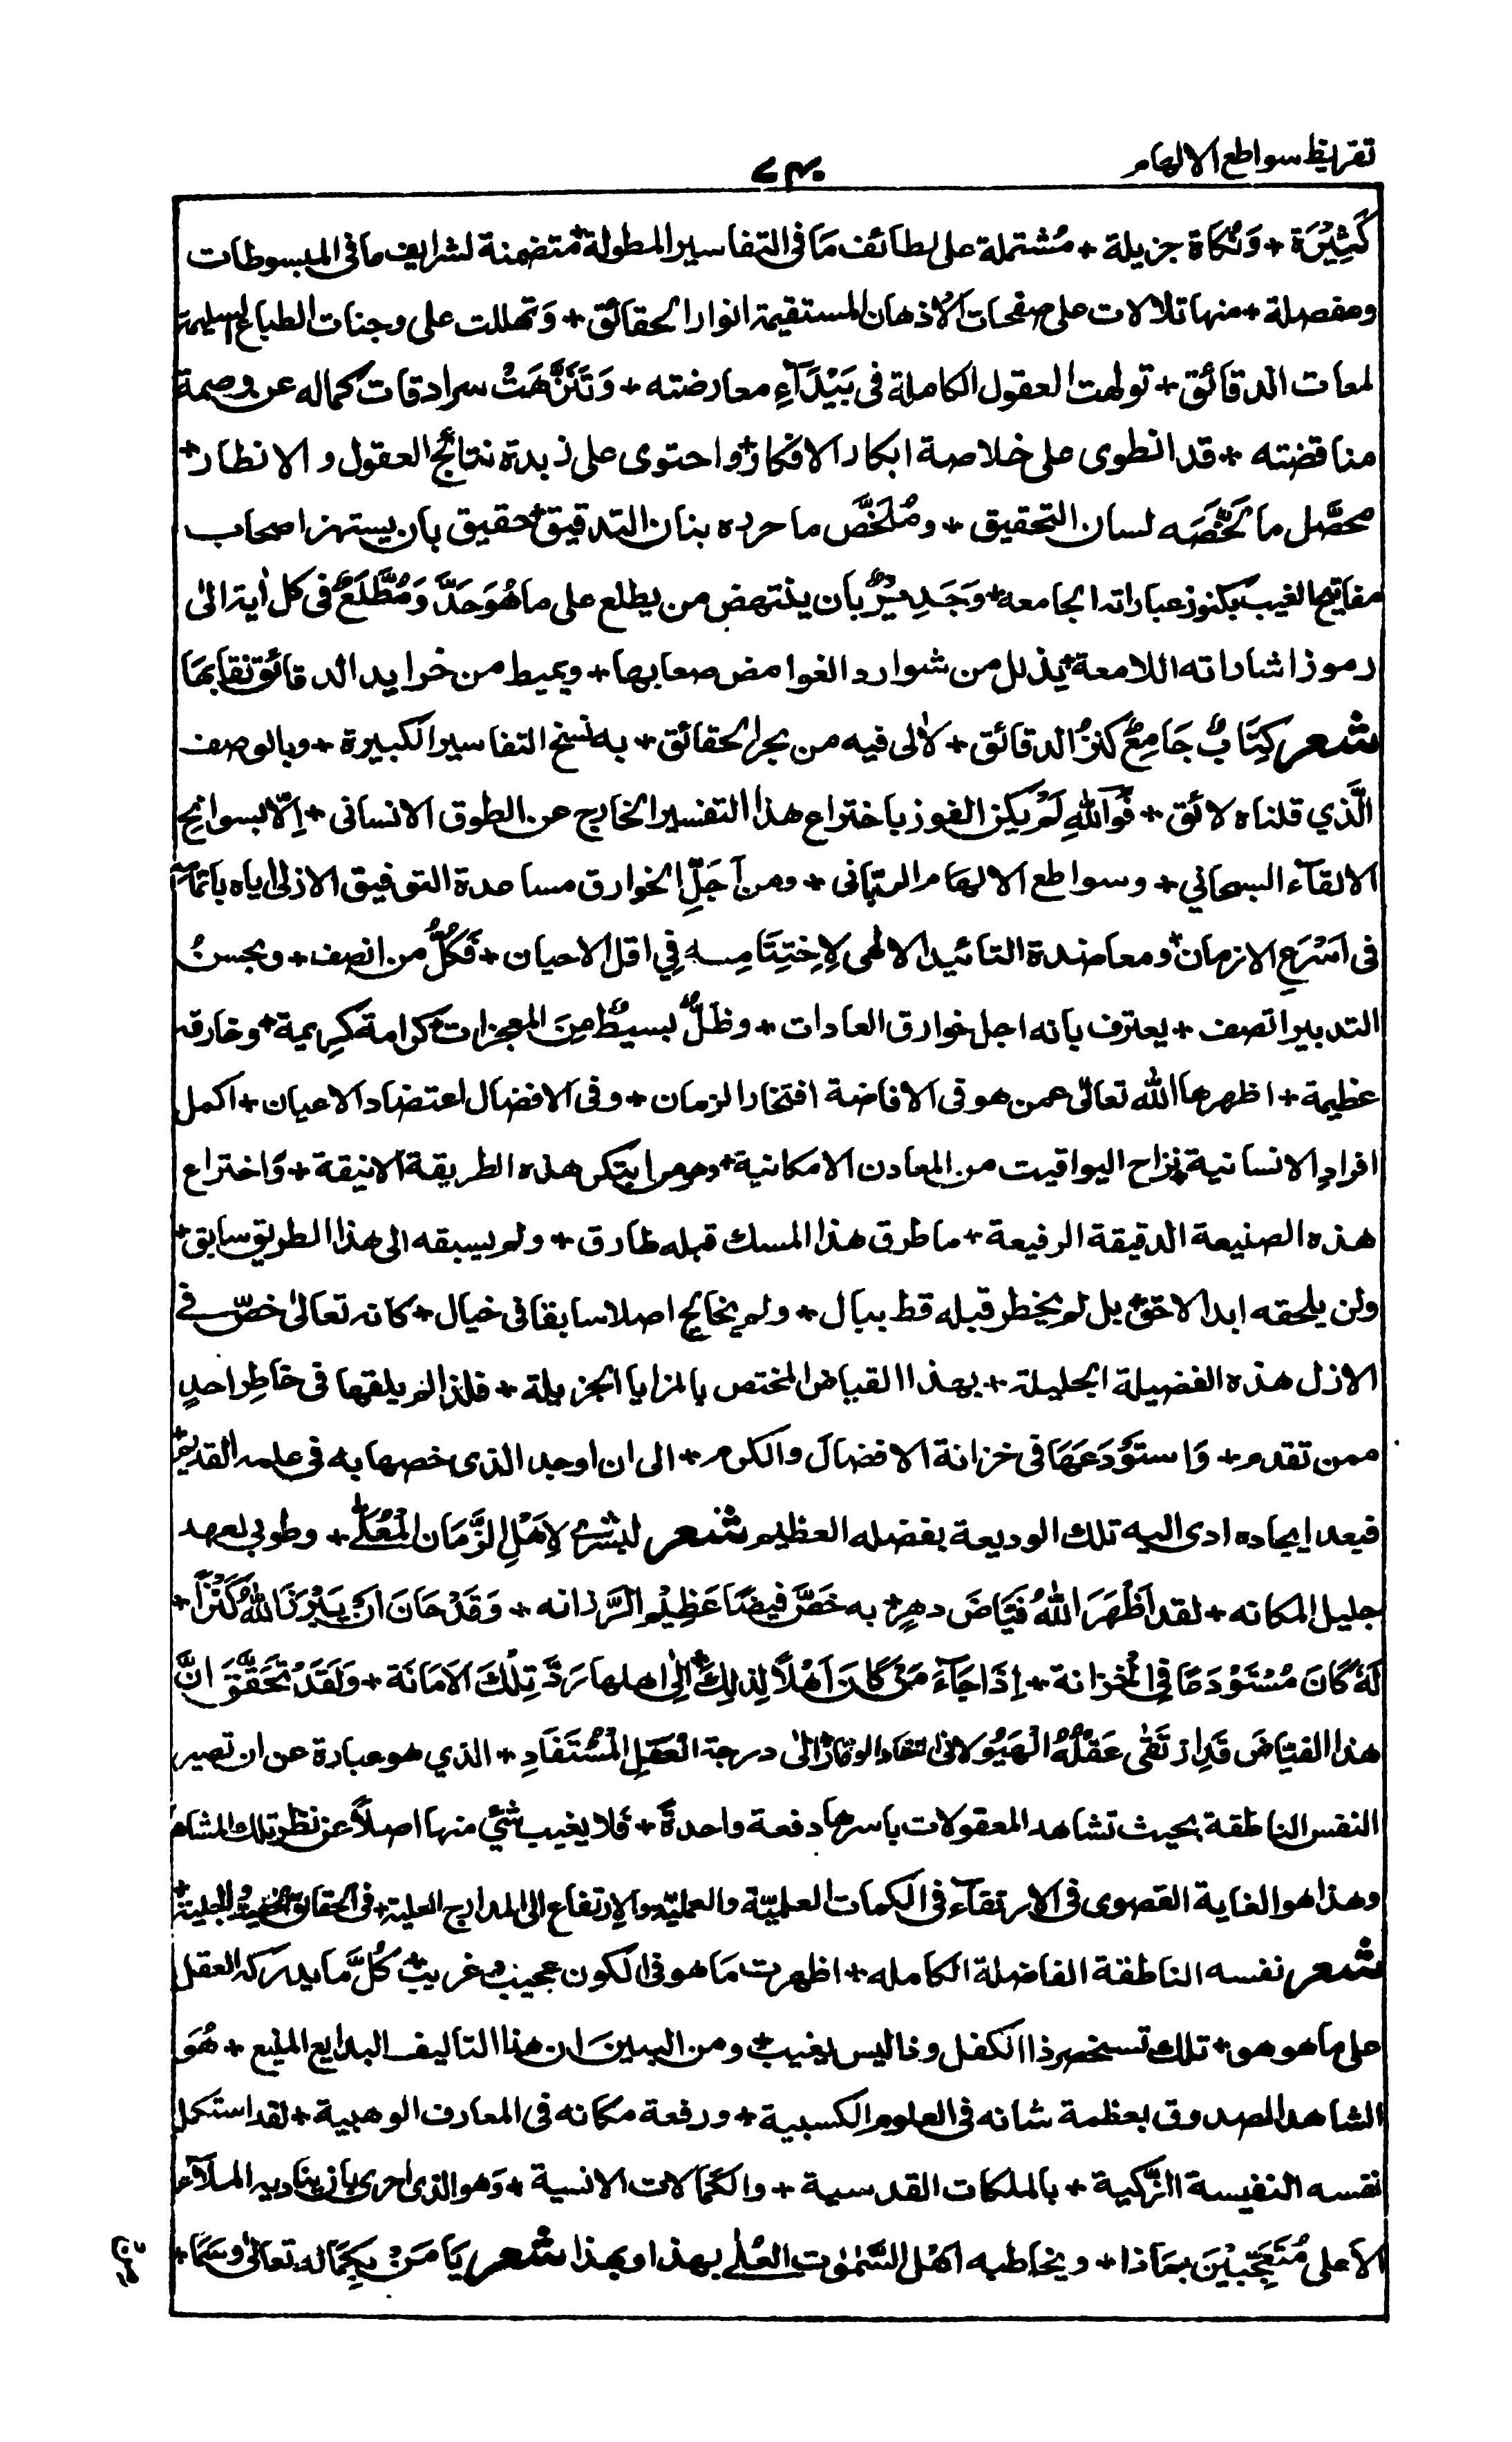 تقريظ سواطع الالهام
٧٤٠
كَثِيْرَة + وَنُكاة جزيلة + مُشتملة على لطائف مَا فى التفاسير المطولة + متضمنة لشرايف ما فى المبسوطات
ومفصلة + منها تلالات على صفحات الاذهان المستقيمة انوار الحقائق + وتهللت على وجنات الطباع السليمة
لمعات الدقائق + تولهت العقول الكاملة فى بَيْدَآءِ معارضته + وَتَنَزَّهَتْ سرادقات كماله عن وصمة
مناقضته + قد انطوى على خلاصة ابكار الافكار + واحتوى على زبدة نتائج العقول و الانظار +
محصَّل ما لَخَّصَه لسان التحقيق + ومُلَخَّص ما حرره بنان التدقيق + حقيق بان يستهز اصحاب
مفاتيح الغيب بكنوز عباراته الجامعه + وَجَدِيْرٌ بان ينتهض من يطلع على ما هُوَ حَدٌّ وَمُطَّلَعٌ فى كل أية الىٰ
رموز اشاراته اللامعة + يذلل من شوارد الغوامض صعابها + ويميط من خرايد الدقائق نقابَها
شعر كِتَابٌ جَامِعٌ كنزُ الدقائق + لاٰلى فيه من بحر الحقائق + به نسخ التفاسير الكبيرة + وبالوصف
الَّذي قلناه لائق + فَوَاللهِ لَمْ يكن الفوز باختراع هذا التفسير الخارج عن الطوق الانسانى + اِلّا بسوانح
الالقآء السبحاني + وسواطع الالهام الربانى + ومن اَجَلِّ الخوارق مساعدة التوفيق الازلى اياه باتمامه
فى اَسْرَعِ الازمان + ومعاضدة التائيد الالهى لاِخْتِتَامِه فِي اقل الاحيان + فَكُلُّ من انصف + وبحسنُ
التدبير اتصف + يعترف بانه اجل خوارق العادات + وظلٌّ بسيطٌ مِنَ المعجزات + كرامة كرِيمية + وخارقه
عظيمة + اظهرها الله تعالىٰ عمن هو فى الافاضة افتخار الزمان + وفى الافضال اعتضاد الاعيان + اكمل
افرادِ الانسانية + نزاح اليواقيت من المعادن الامكانية + وهو من ابتكر هذه الطريقة الانيقة + وَاختراع
هذه الصنيعة الدقيقة الرفيعة + ما طرق هذا المسلك قبله طارق + ولم يسبقه الى هذا الطريق سابق +
ولن يلحقه ابدا لاحق + بل لم يخطر قبله قط ببال + ولم يخالج اصلا سابقا فى خيال + كانه تعالىٰ خصّ فے
الازل هذه الفضيلة الجليلة + بهذا الفياض المختص بالمزايا الجزيلة + فلذا لم يلقها فى خاطِر احدٍ
ممن تقدم + وَاستَوْدَعَهَا فى خزانة الافضال والكرم + الى ان اوجد الذى خصها به فى علمه القديم +
فبعد ايجاده ادى اليه تلك الوديعة بفضله العظيم شعر لبشرىٰ لاِهْلِ الزَّمَان المُعَلّے + وطوبى لعهد
جليل المكانه + لقد اَظْهَرَ اللهُ فَيَّاضَ دهرٍ + به خَصَّ فيضًا عَظِيْم الرَّزانه + وَقَدْ حَانَ اَنْ يَبْرُزَ اللهُ كَنْزًا +
لَهٗ كَانَ مُسْتَوْدَعًا فِى الْخزانة + اِذَا جَآءَ مَنْ كَانَ اَهْلًا لِذلِكَ + اِلىٰ اهلها رَدَّ تِلْكَ الاَمَانَة + وَلَقَدْ تَحَقَّقَ انَّ
هذا الفيّاضَ قَدِ ارْتَقٰى عَقْلُهُ الْهَيُوْلانى الىٰ درجة الْعَقْلِ الْمُسْتَفَادِ + الذي هو عبارة عن ان تصير
النفس الناطقة بحيث تشاهد المعقولات باسرها دفعة واحدةً + فلا يغيب شئ منها اصلاً عن نظر تلك المشاهدة
وهذا هو الغاية القصوى فى الارتقآء فى الكمات العلميّة والعمليّة + والارتفاع الى المدارج العلية + فى الحقائق
شعر نفسه الناطقة الفاضلة الكامله + اظهرت مَا هو فى الكون عجيبٌ غريبٌ + كُلَّ ما يدركه العقل
على ما هو هو + تلك تستحضر ذا الكفل وذا ليس يغيب + ومن البين ان هذا التاليف البدايع المنيع + هُوَ
الشاهد الصدوق بعظمة شانه فى العلوم الكسبية + ورفعة مكانه فى المعارف الوهبية + لقد استكمل
نفسه النفيسة الزَّكية + بالملكات القدسية + والكمالات الانسية + وَهو الذى احرى بان يناديه الملآء
الاَعلى مُتَعَجِّبِيْنَ بمَاذا + ويخاطبه اَهْل السَّمٰوٰت العُلے بهذا وبهذا شعر يَا مَنْ بِكمَالهِ تعالىٰ وسَمَا +